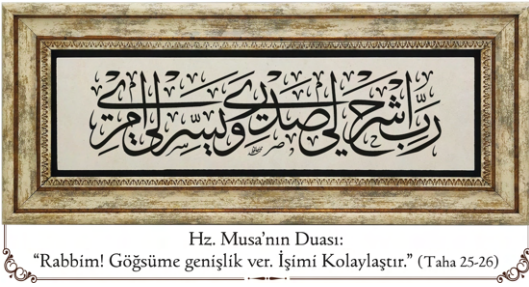 رَبِّ اشْرَحْ لِي صَدْرِي وَيَسِّرْ لِي أَمْرِي
Hz. Musa'nın Duası:
“Rabbim! Göğsüme genişlik ver. İşimi Kolaylaştır.” (Taha 25-26)